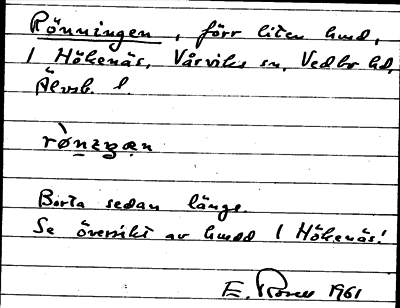 Rönningen, förr liten hmd,
1 Hökenäs, Vårviks sn, Vedbo hd,
Älvsb. l.
rö̀nɩŋæn
Borta sedan länge.
Se översikt av hmdd 1 Hökenäs!
E. Rosell 1961